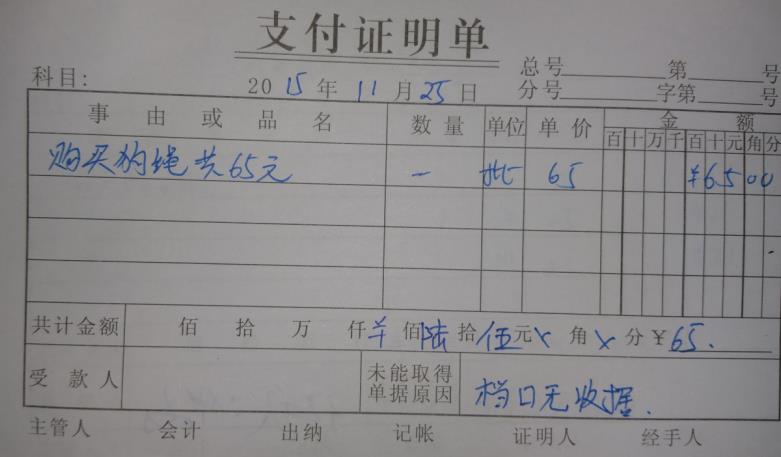 支付证明单
科目: 2015年11月25日 总号 第 号
分号 字第 号
事由或品名 数量 单位 单价 金额
百 十 万 千 百 十 元 角 分
购买狗绳共65元 一 批 65 ¥6500
共计金额 佰 拾 万 仟 羊 佰 陆 拾 伍 元 × 角 × 分 ¥65.
受款人 未能取得单据原因 档口无收据.
主管人 会计 出纳 记帐 证明人 经手人